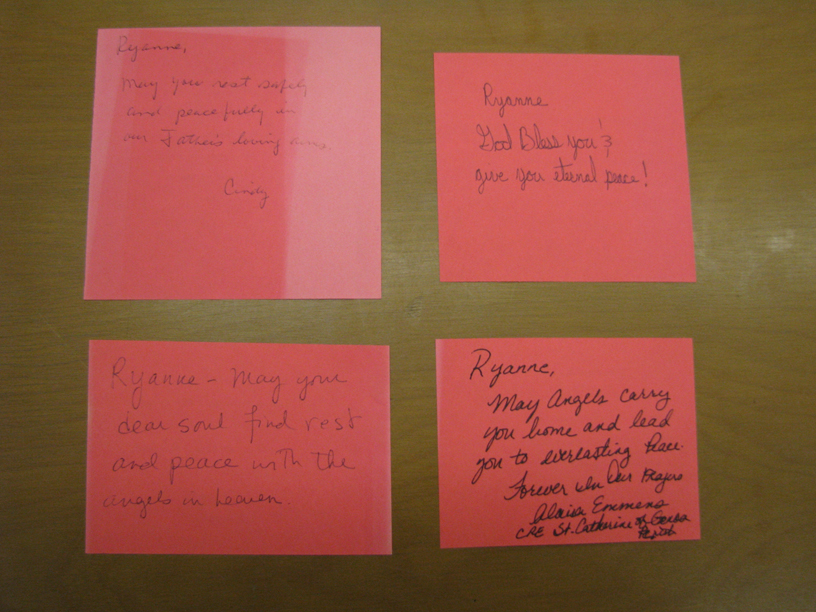 Ryanne,
May you rest safely
and peacefully in
our Father's loving arms.
Cindy
Ryanne
God Bless you &
give you eternal peace!
Ryanne - May your
dear soul find rest
and peace with the
angels in heaven.
Ryanne,
May Angels carry
you home and lead
you to everlasting Peace.
Forever In Our Prayers
Emmens
CRE St. Catherine of Genoa
Parish